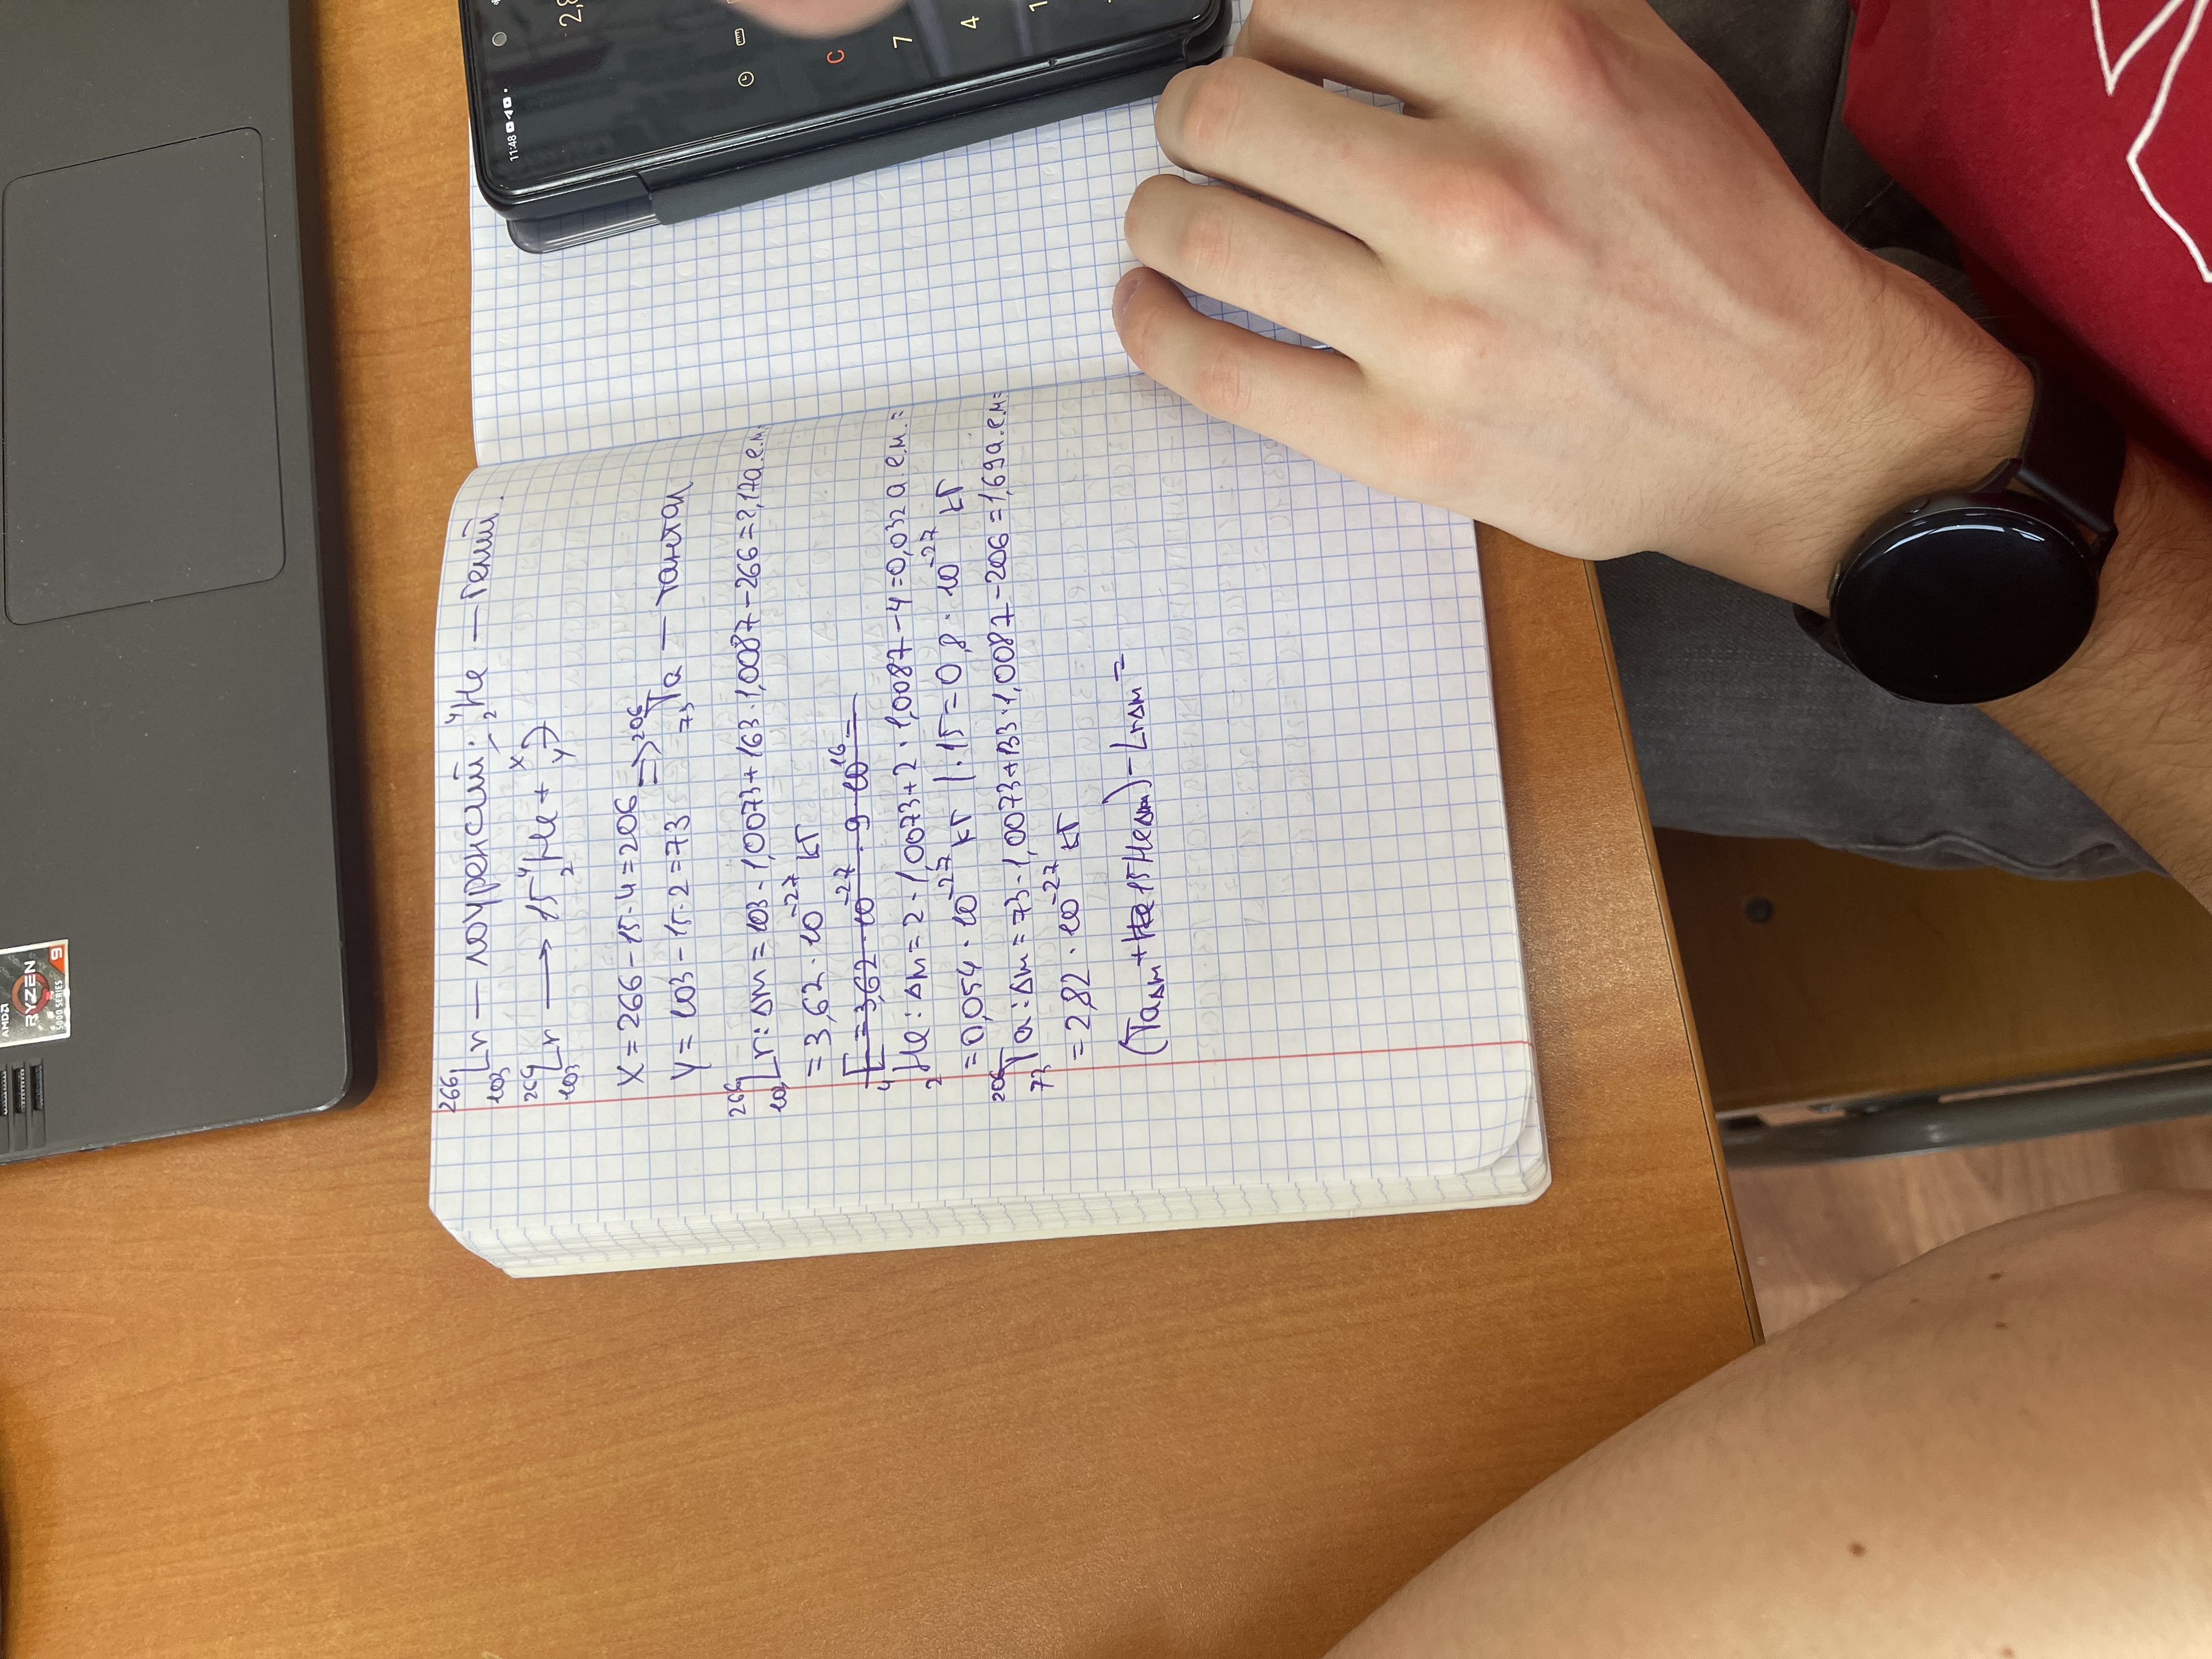 AMD
RYZEN
5000 SERIES 9
²⁶⁶₁₀₃Lr — лоуренсий; ⁴₂He — гелий.
²⁶⁶₁₀₃Lr ⟶ 15 ⁴₂He + ˣᵧЭ
X = 266 - 15·4 = 206 => ²⁰⁶₇₃Ta — тантал
Y = 103 - 15·2 = 73
²⁶⁶₁₀₃Lr: Δm = 103·1,0073 + 163·1,0087 - 266 = 2,17 а.е.м. =
= 3,62·10⁻²⁷ кг
E = 3,62·10⁻²⁷·9·10¹⁶ =
⁴₂He: Δm = 2·1,0073 + 2·1,0087 - 4 = 0,032 а.е.м. =
= 0,054·10⁻²⁷ кг |·15 = 0,8·10⁻²⁷ кг
²⁰⁶₇₃Ta: Δm = 73·1,0073 + 133·1,0087 - 206 = 1,69 а.е.м =
= 2,82·10⁻²⁷ кг
(TaΔm + 15HeΔm) - LrΔm =
11:48
2,8
C
7
4
1